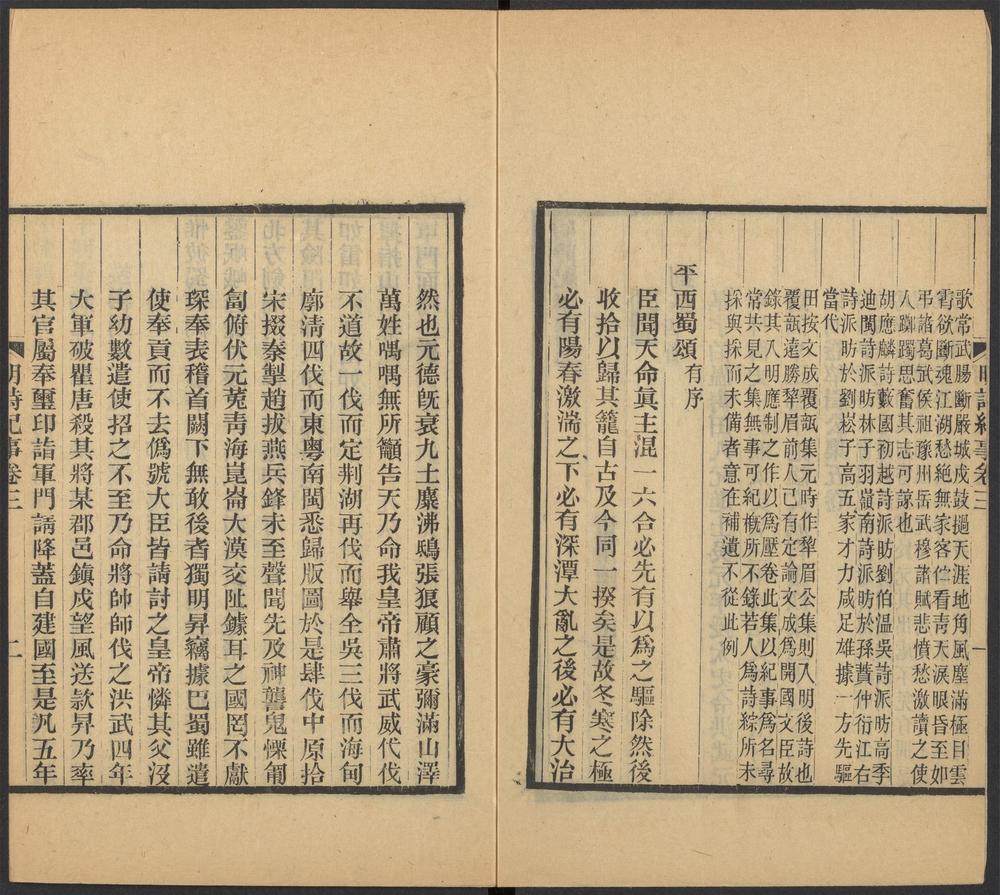 歌常武腸斷嚴城戍鼓撾天涯地角風塵滿極目雲
霄欲斷魂江湖愁絕無家客伫看靑天淚眼昏至如
弔諸葛武侯祖豫州岳武穆諸賦悲憤愁激讀之使
人躑躅思奮其志可諒也
胡應麟詩藪國初越詩派昉劉伯溫吳詩派昉高季
迪閩詩派昉林子羽嶺南詩派昉於孫蕡仲衍江右
詩派昉於劉崧子高五家才力咸足雄據一方先驅
當代
田按文成覆瓿集元時作犂眉公集則入明後詩也
覆瓿遠勝犂眉前人已有定論文成爲開國文臣故
錄其入明應制之作以爲壓卷此集以紀事爲名尋
常共見之集無事可紀槪所不錄若人爲詩綜所未
採與採而未備者意在補遺不從此例
平西蜀頌有序
臣聞天命眞主混一六合必先有以爲之驅除然後
收拾以歸其籠自古及今同一揆矣是故冬寒之極
必有陽春激湍之下必有深潭大亂之後必有大治
然也元德旣衰九土麋沸鴟張狼顧之豪彌滿山澤
萬姓喁喁無所籲告天乃命我皇帝肅將武威代伐
不道故一伐而定荆湖再伐而舉全吳三伐而海甸
廓淸四伐而東粵南閩悉歸版圖於是肆伐中原拾
宋掇秦掣趙拔燕兵鋒未至聲聞先及神讋鬼慄匍
匐俯伏元菟靑海崑崙大漠交阯鐻耳之國罔不獻
琛奉表稽首闕下無敢後者獨明昇竊據巴蜀雖遣
使奉貢而不去僞號大臣皆請討之皇帝憐其父沒
子幼數遣使招之不至乃命將帥師伐之洪武四年
大軍破瞿唐殺其將某郡邑鎭戍望風送款昇乃率
其官屬奉璽印詣軍門請降蓋自建國至是凡五年
明詩紀事卷三
二